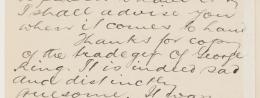 I shall advise you
when it comes to hand
Thanks for copy
of the tradegey of George
King. It is indeed sad
and distinctly
gruesome. It was